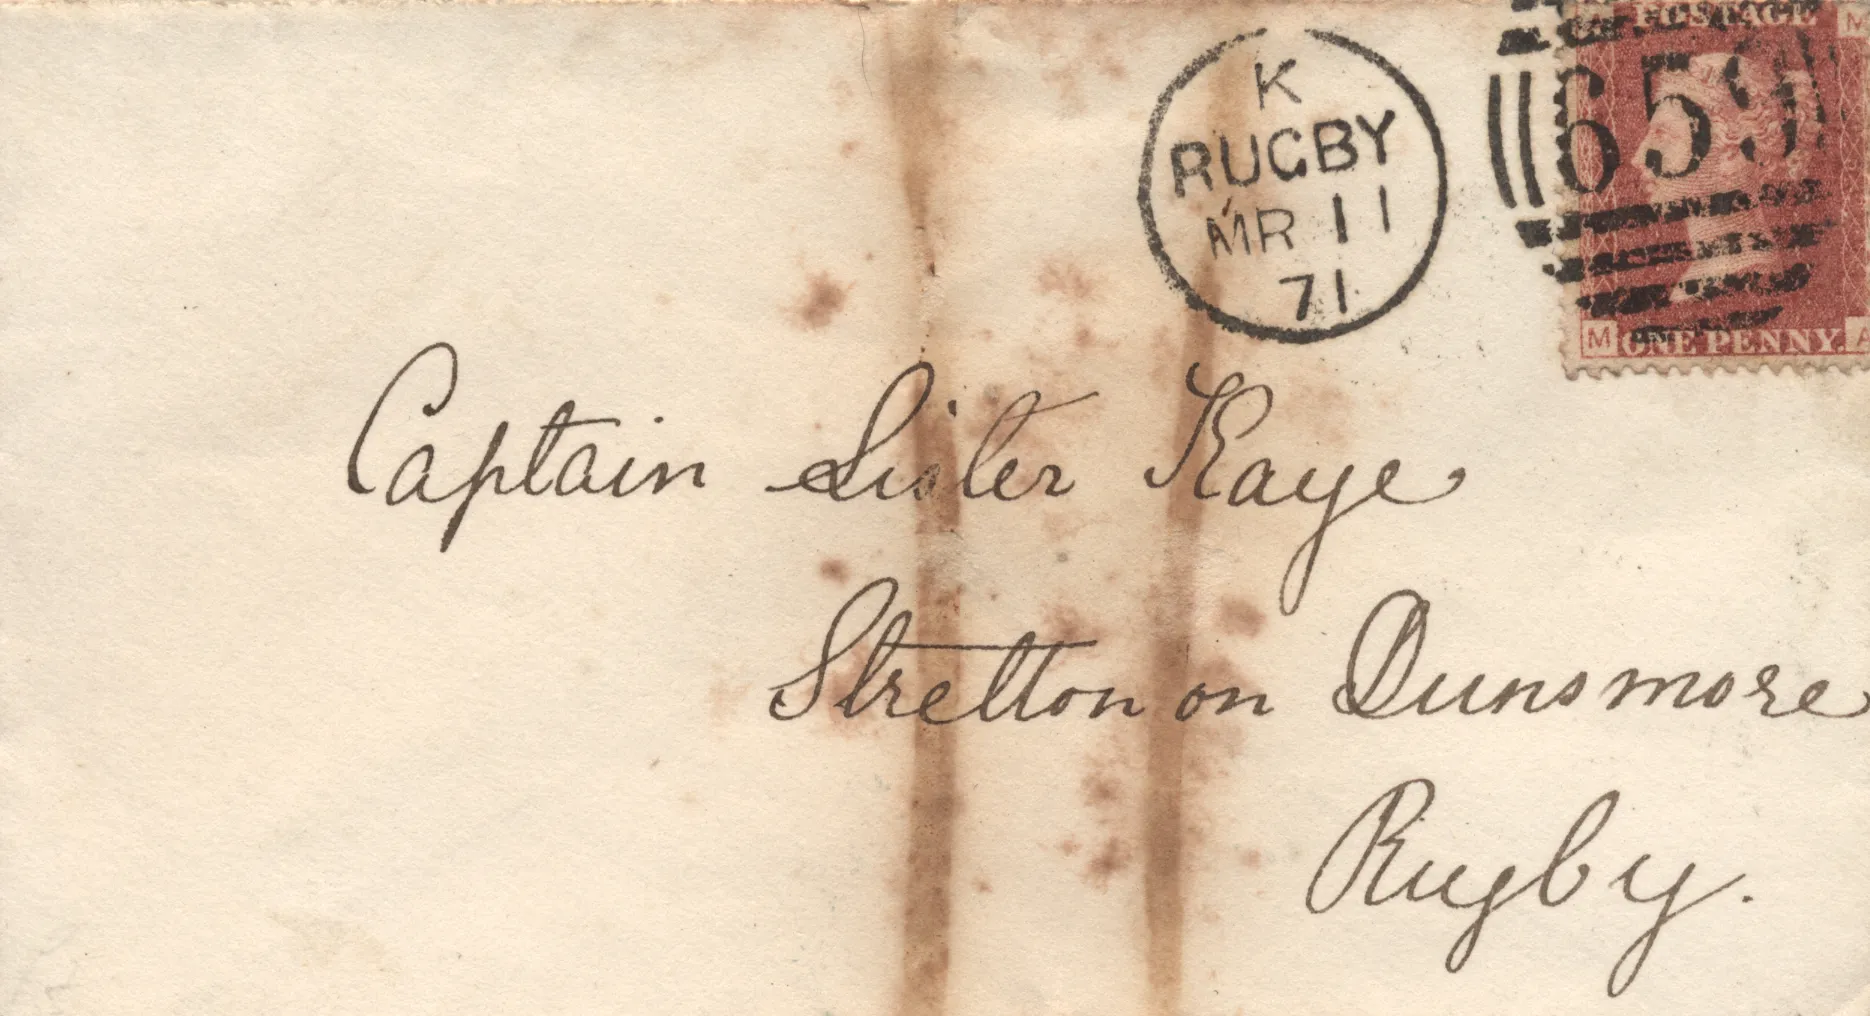 POSTAGE M
K
RUGBY
MR 11
71
659
M ONE PENNY. A
Captain Lister Kaye
Stretton on Dunsmore
Rugby.